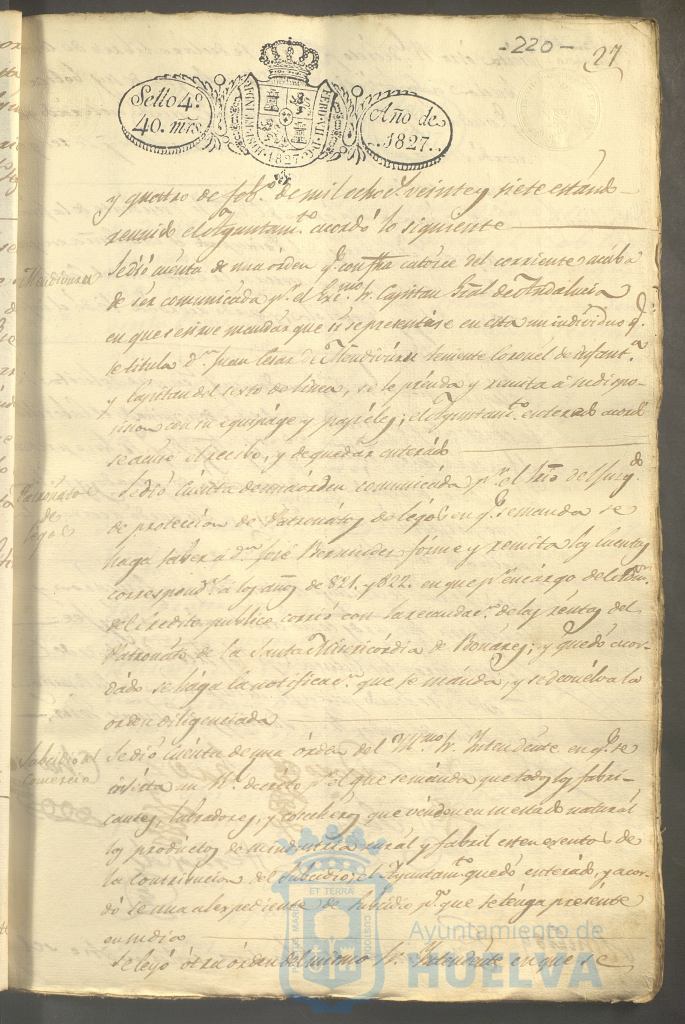 -220-
27
Sello 4º
40. mrs
HISP. ET IND. R.
FERDIN. VII. D. G.
1827
Año de
1827.
y quatro de febº. de mil ochoc.s veinte y siete estando
reunido el Ayuntam.to acordó lo siguiente
Mendivuru
Se dió cuenta de una órden q.e con fha catorce del corriente acaba
de ser comunicada p.r el Exc.mo Sr. Capitan Gral de Andalucia
en que se sirve mandar que si se presentase en esta un individuo q.e
se titula d.n Juan Cesar de Teniente Coronel de Infant.a
y Capitan del sexto de linea, se le prenda y remita á su dispo-
sicion con su equipage y papeles; el Ayuntam.to enterado acordó
se acuse el recibo, y de quedar enterado
Patronato
de
legos
Se dió cuenta de una órden comunicada p.r el Srio del Juzg.do
de proteccion de Patronatos de legos en q.e se manda se
haga saber a d.n José Bermudez forme y remita las cuentas
correspond.s á los años de 821. y 822. en que p.r encargo del
del credito publico corrió con la recaudac.n de las rentas del
Patronato de la Santa Misericordia de Bonares; y quedó acor-
dado se haga la notificac.n que se manda, y se devuelva la
orden diligenciada
Subsidio del
Comercio
Se dió cuenta de una órden del Sr. Intendente en q.e se
inserta un Rl. decreto p.r el que se manda que todos los fabri-
cantes, labradores, y cosecheros que venden en mercado natural
los productos de su industria rural y fabril esten exentos de
la Contribucion del Subsidio; el Ayuntam.to quedó enterado, y acor-
dó se una al expediente de Subsidio p.a que se tenga presente
en su dia
Se leyó otra órden del mismo Sr. Intendente en que se
PORTUS MARIS
ET TERRÆ
CUSTODIA
Ayuntamiento de
HUELVA